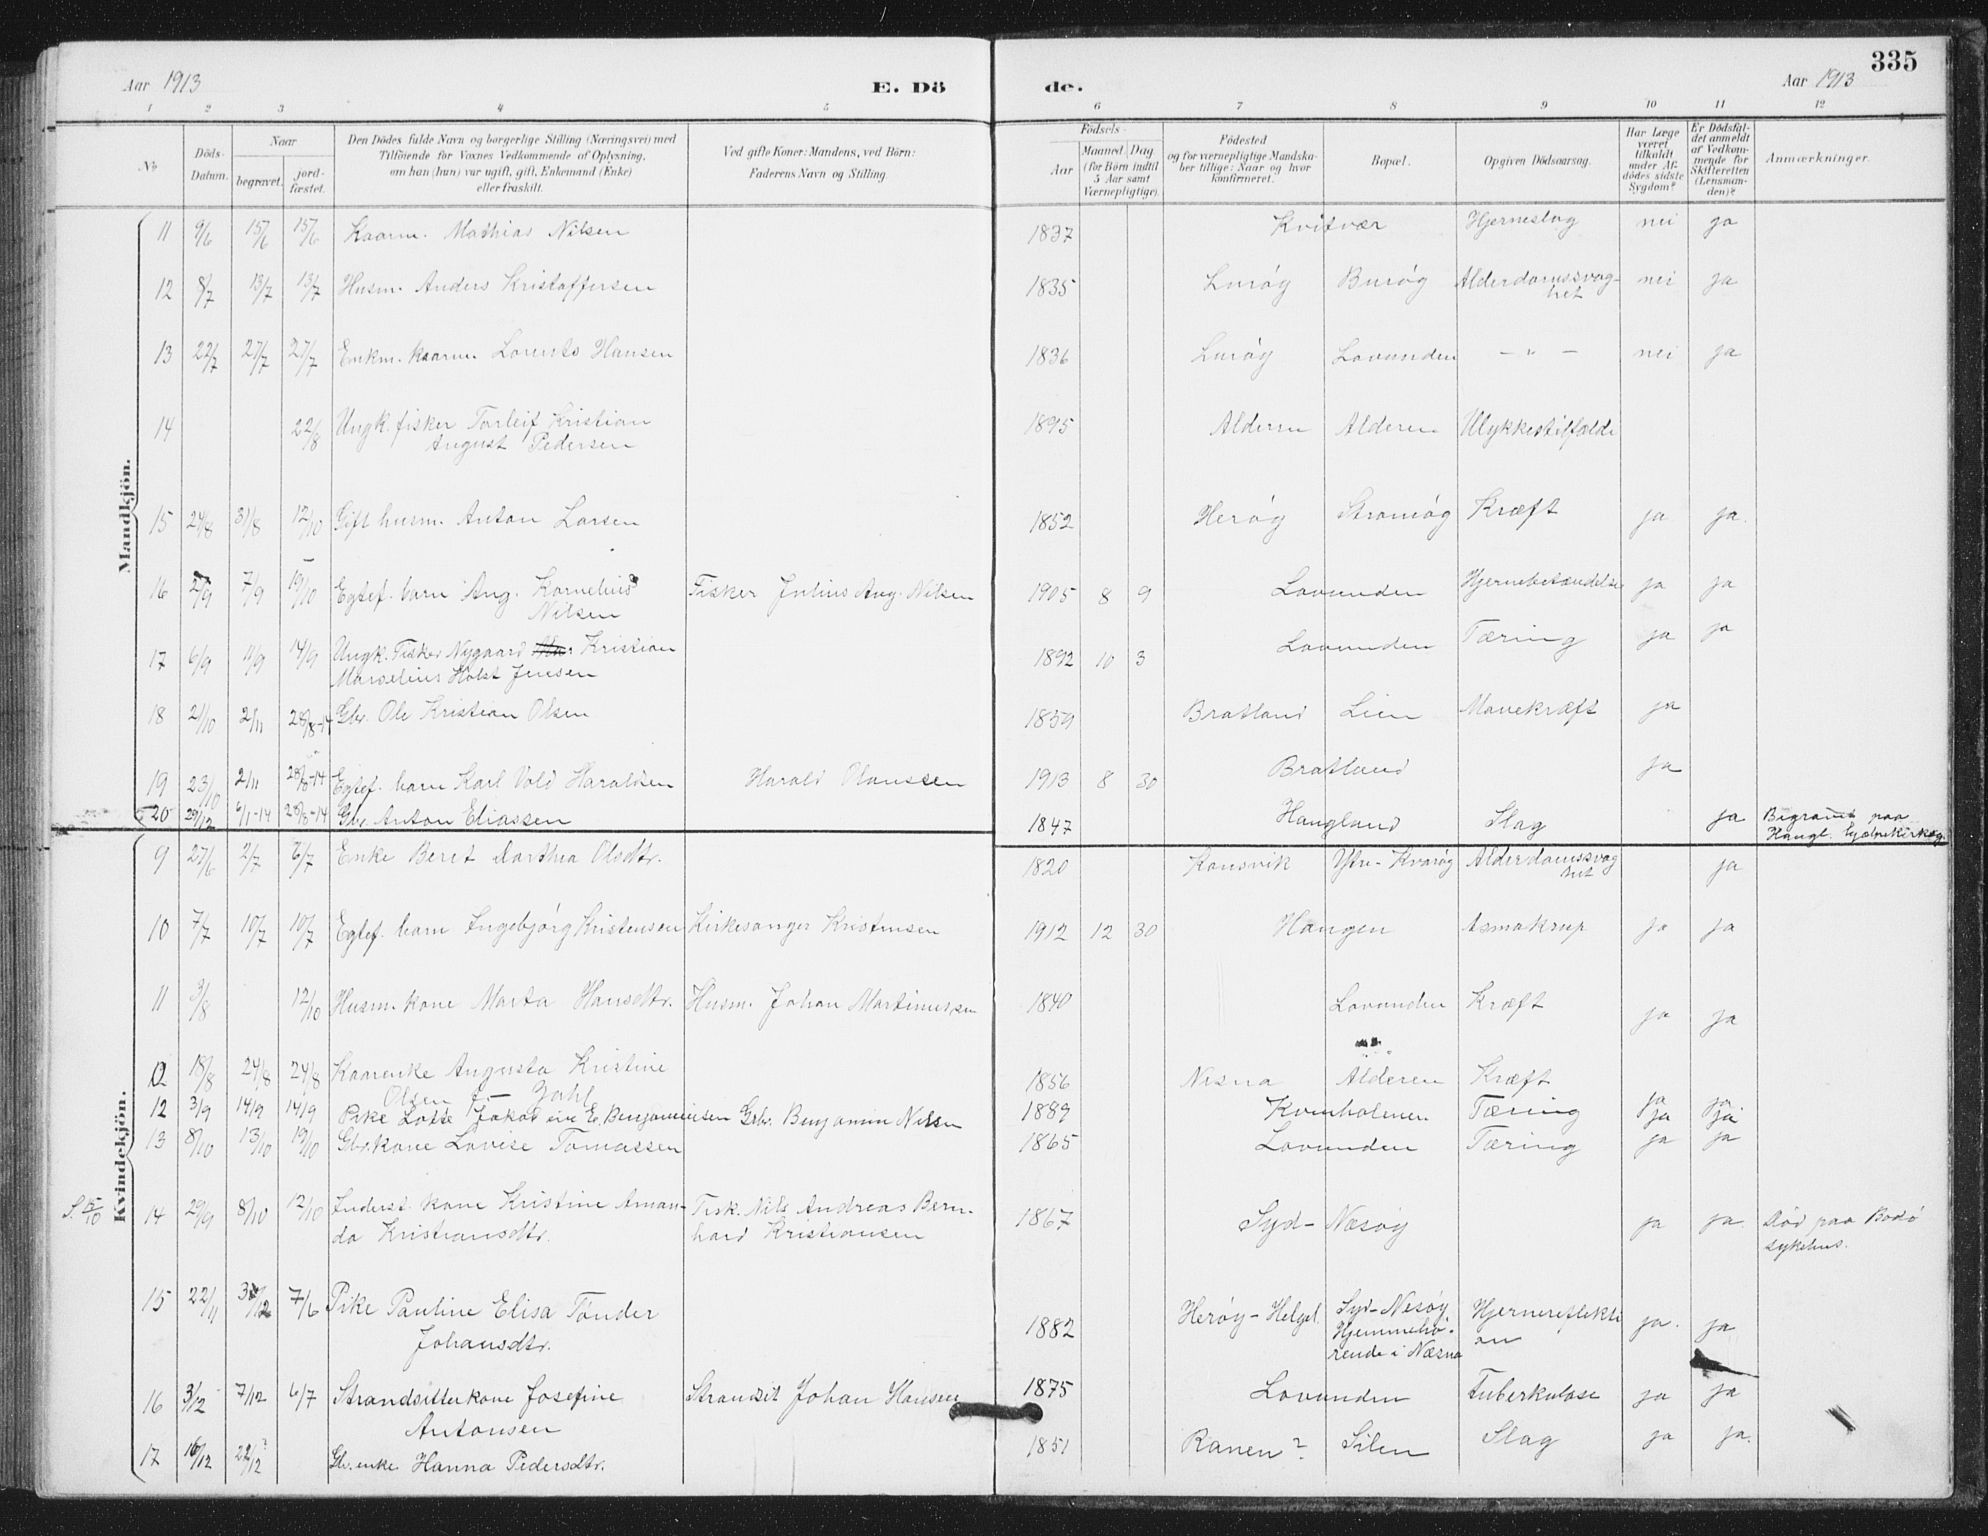 335
Aar 1913 E. Dö de. Aar 1913
1 2 3 4 5 6 7 8 9 10 11 12
No
Döds-Datum.
Naar
begravet.
jord-fæstet.
Den Dödes fulde Navn og borgerlige Stilling (Næringsvei) med
Tilföiende for Voxnes Vedkommende af Oplysning,
om han (hun) var ugift, gift, Enkemand (Enke)
eller fraskilt.
Ved gifte Koner: Mandens, ved Börn:
Faderens Navn og Stilling
Födsels-
Aar
Maaned. Dag
(for Börn indtil
5 Aar samt
Værnepligtige).
Födested
og for værnepligtige Mandska-
ber tillige: Naar og hvor
konfirmeret.
Bopæl.
Opgiven Dödsaarsag.
Har Læge
været
tilkaldt
under Af-
dödes sidste
Sygdom?
Er Dödsfal-
det anmeldt
af Vedkom-
mende for
Skifteretten
(Lensman-
den)?
Anmærkninger.
Mandkjön.
11 9/6 15/6 15/6 Kaarm. Mathias Nilsen 1837 Kvitvær Hjerneslag nei ja
12 8/7 13/7 13/7 Husm. Anders Kristoffersen 1835 Lurøy Burøy Alderdomssvag-
het nei ja
13 22/7 27/7 27/7 Enkm. kaarm. Lorents Hansen 1836 Lurøy Lovunden — " — nei ja
14 22/8 Ungk. fisker Torleif Kristian
August Pedersen 1895 Alderen Alderen Ulykkestilfælde
15 24/8 31/8 12/10 Gift husm. Anton Larsen 1852 Herøy Stromøy Kræft ja ja.
16 2/9 7/9 19/10 Egtef. barn Aug. Kornelius
Nilsen Fisker Julius Aug. Nilsen 1905 8 9 Lovunden Hjernebetændelse ja ja
17 6/9 11/9 14/9 Ungk. Fisker Nygaard Kristian
Marselius Holst Jensen 1892 10 3 Lovunden Tæring ja ja
18 21/10 2/11 28/8-14 Gbr. Ole Kristian Olsen 1859 Bratland Lien Mavekræft ja
19 23/10 2/11 28/8-14 Egtef. barn Karl Vold Haraldsen Harald Olaussen 1913 8 30 Bratland ja
20 29/12 6/1-14 28/8-14 Gbr. Anton Eliassen 1847 Haugland Slag ja Begravet paa
Haugl. hjælpekirkeg.
Kvindekjön.
9 27/6 2/7 6/7 Enke Beret Dorthea Olsdtr. 1820 Konsvik Ytre-Kvarøy Alderdomssvag
het ja
10 7/7 10/7 10/7 Egtef. barn Ingebjørg Kristensen Kirkesanger Kristensen 1912 12 30 Haugen Asmakrup ja ja
11 3/8 12/10 Husm. kone Marta Hansdtr. Husm. Johan Martinussen 1840 Lovunden Kræft ja ja
12 18/8 24/8 24/8 Kaarenke Augusta Kristine
Olsen f. Jahl 1856 Nesna Alderen Kræft ja ja
12 3/9 14/9 14/9 Pike Lotte Jakobine E. Benjaminsen Gbr. Benjamin Nilsen 1889 Kvinholmen Tæring ja ja
13 8/10 13/10 19/10 Gbr.kone Lovise Tomassen 1865 Lovunden Tæring ja ja
S. 15/10 14 29/9 8/10 12/10 Inderst. kone Kristine Aman-
da Kristiansdtr. Fisk. Nils Andreas Bern-
hard Kristiansen 1867 Syd-Nesøy ja ja. Død paa Bodø
sykehus.
15 22/11 7/6 Pike Pauline Elisa Tønder
Johansdtr. 1882 Herøy-Helgel. Syd-Nesøy
Hjemmehø-
rende i Næsna Hjernereflekti
on ja. ja
16 3/12 7/12 6/7 Strandsitterkone Josefine
Antonsen Strandsit Johan Hansen 1875 Lovunden Tuberkulose ja ja
17 16/12 22/12 Gbr. enke Hanna Pedersdtr. 1851 Ranen? Silen Slag ja ja.